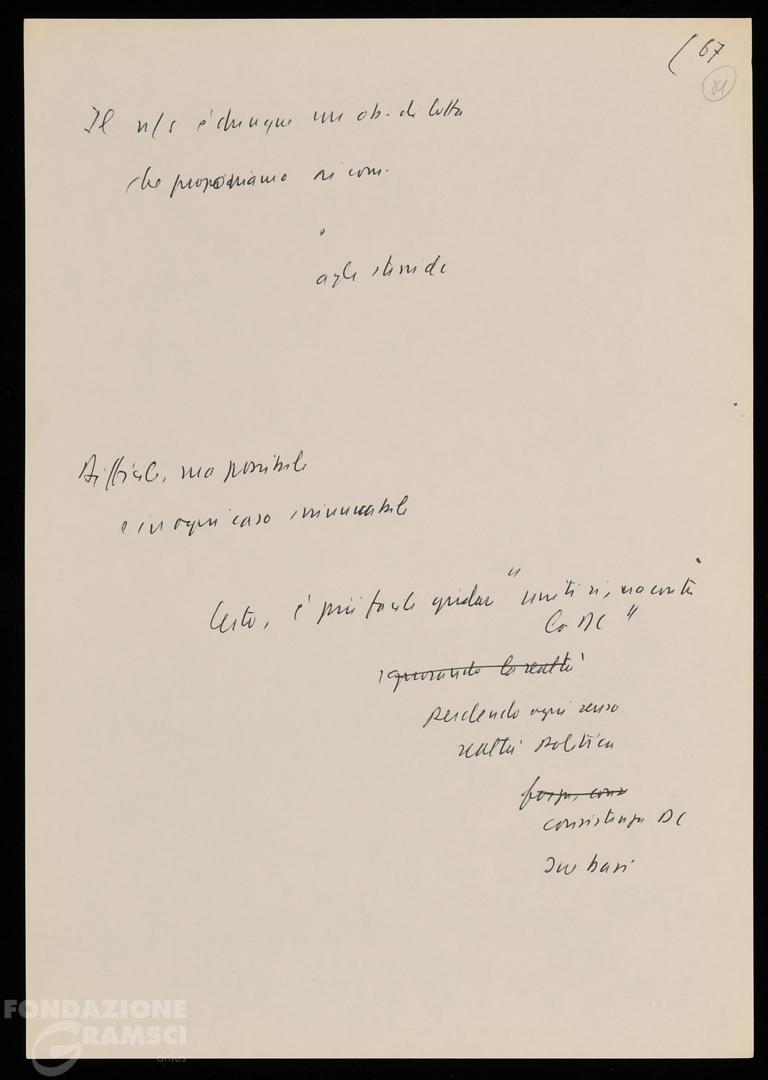 (67
81
Il n/s è dunque un ob. di lotta
che proponiamo ai com.
"
agli
Difficile, ma possibile
e in ogni caso
Certo, è più facile gridare "uniti sì, ma contro
la DC"
ignorando la realtà
perdendo ogni senso
realtà politica
forza, cons
consistenza DC
sue basi
FONDAZIONE
GRAMSCI
onlus